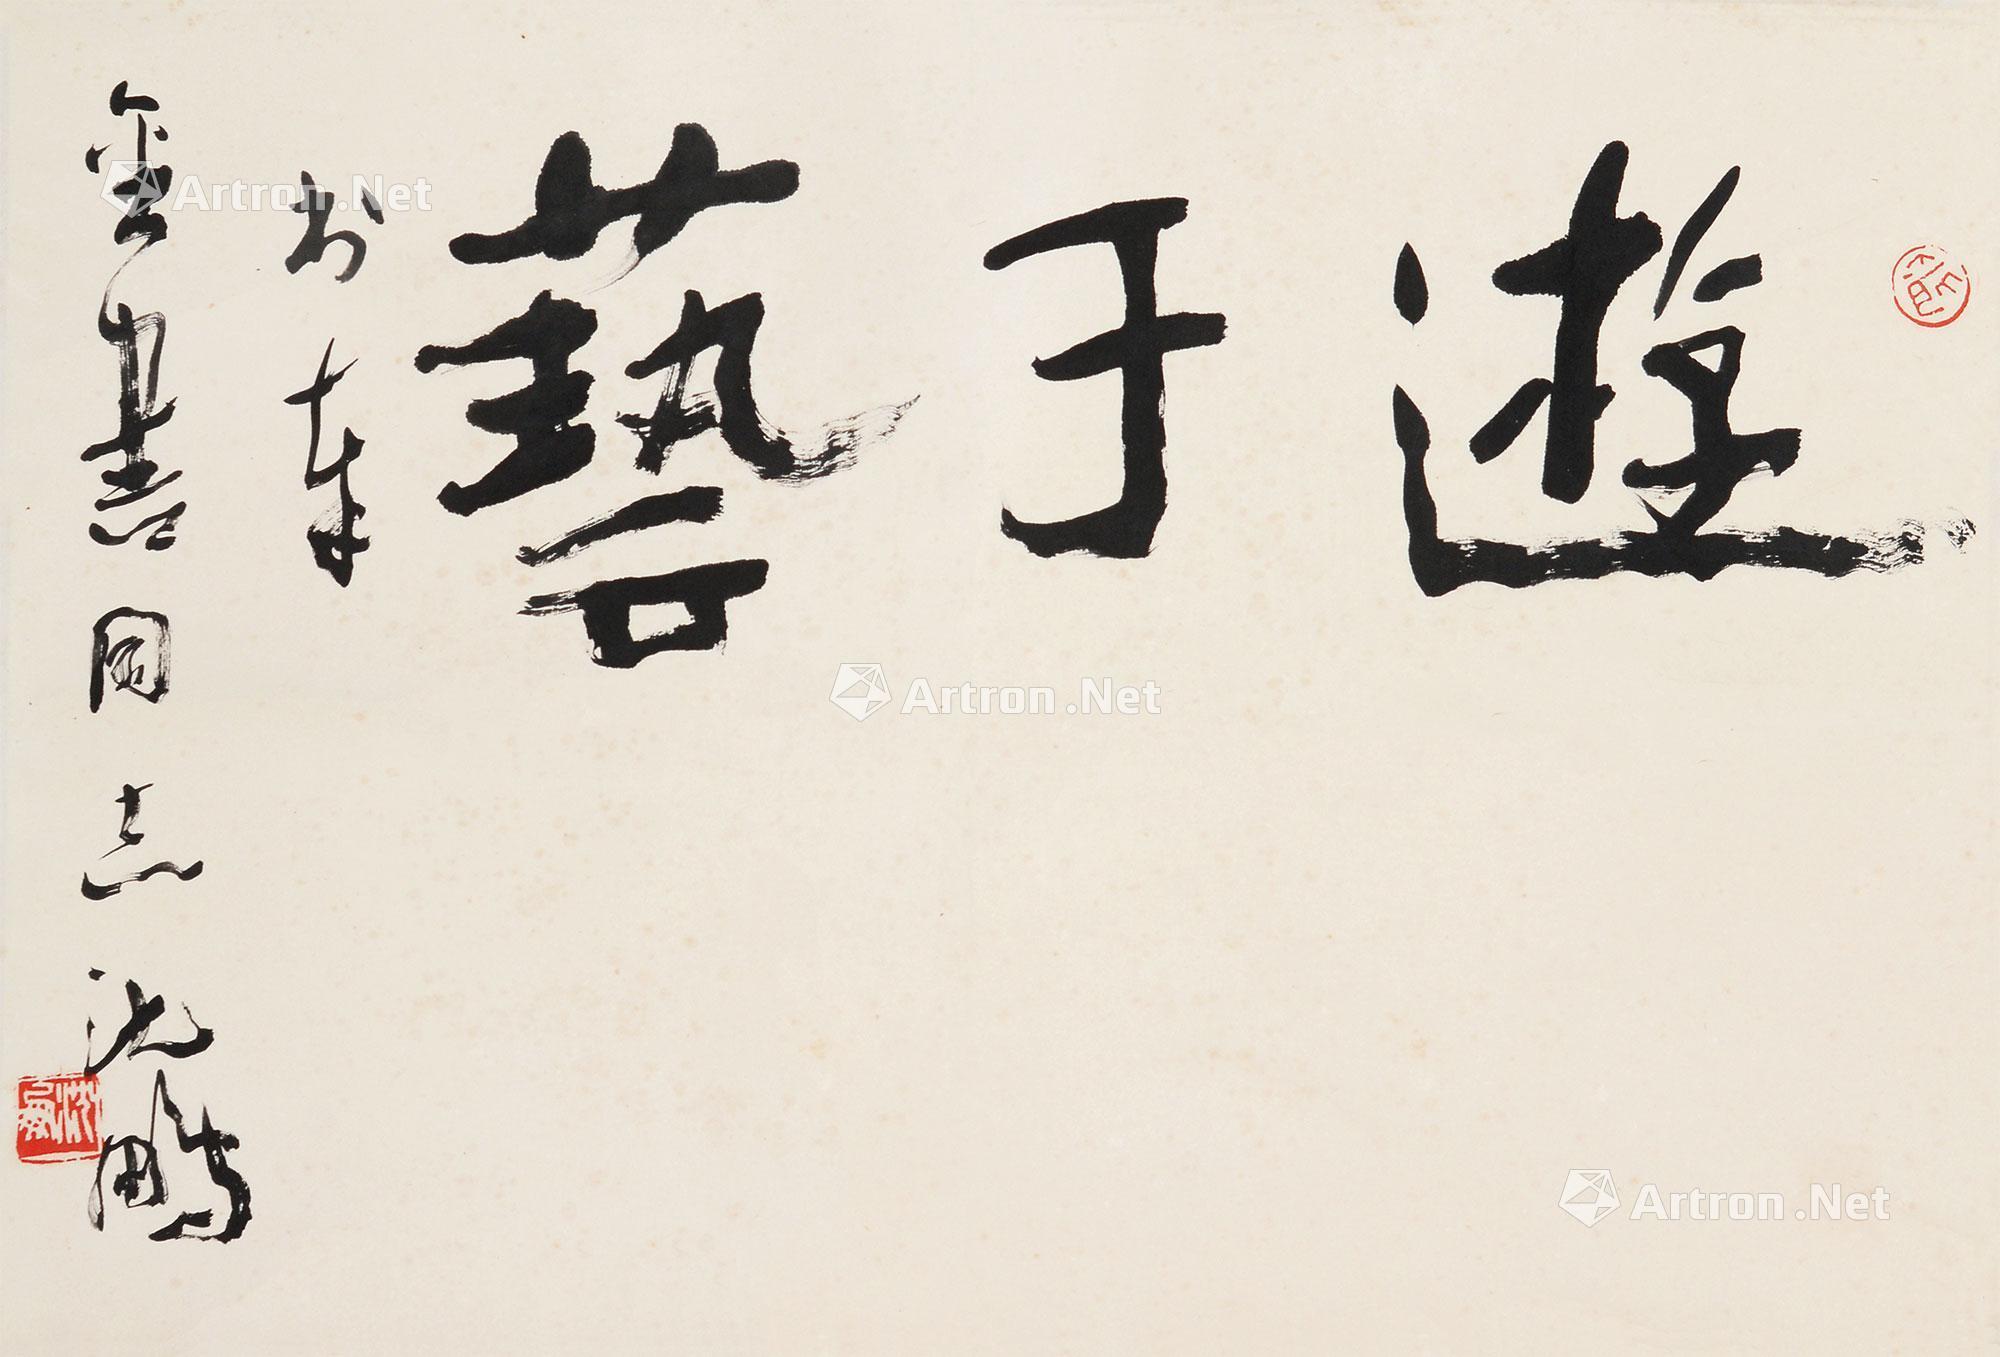 遊于藝
书奉
金同志 沈鵬
Artron.Net
Artron.Net
Artron.Net